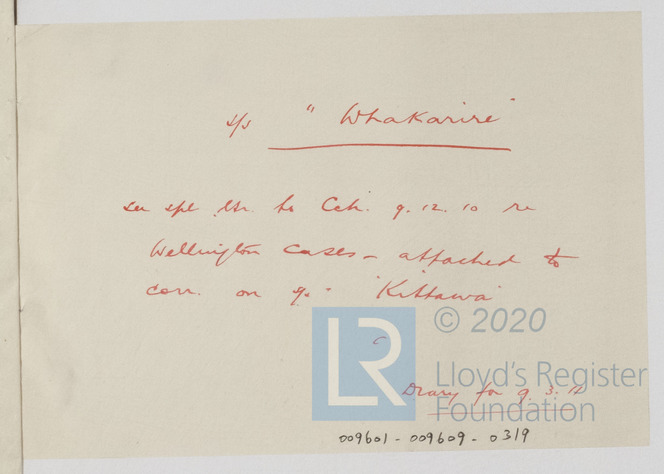 s/s "Whakarire"
see spl ltr. to Cttee. 9.12.10 re
Wellington cases - attached to
corr. on s/s "Kittawa"
© 2020
LR
Lloyd's Register
Foundation
Diary for 9.3.
009601-009609-0319